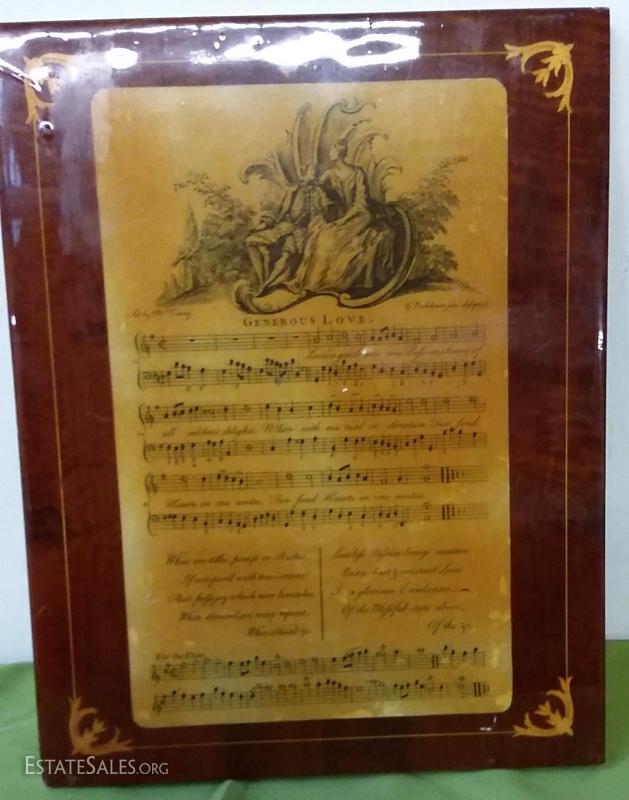 Set by Mr. Carey
GENEROUS LOVE.
all sublime delights, When with mu tual
Hearts in one unite, Two fond Hearts in one unite.
What are titles pomp or Riches,
If compar'd with true
That false joy which now bewitches,
When obtain'd we may repent.
When obtain'd &c.
Lawless Desire brings vexation,
But a chast & constant Love
Is a glorious Emulation
Of the Blissful state above.
Of the &c.
For the Flute
ESTATESALES.ORG